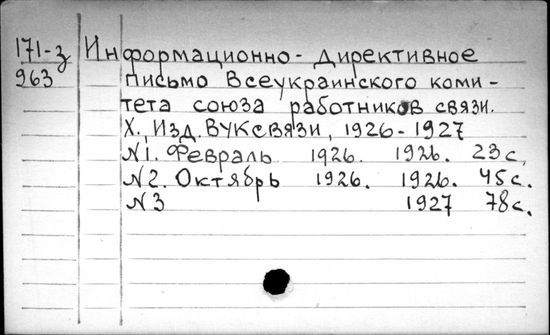 171-з Информационно-директивное
963 письмо Всеукраинского коми-
тета союза работников связи.
Х., Изд. ВУКсвязи, 1926-1927
N1. Февраль 1926. 1926. 23с.
N2. Октябрь 1926. 1926. 45с.
N3 1927 78с.